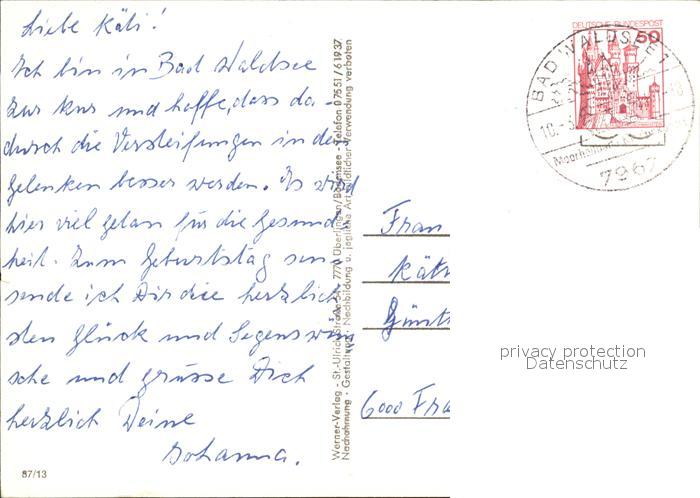 Liebe Käti!
Ich bin in Bad Waldsee
zur Kur und hoffe, dass da-
durch die Versteifungen in den
Gelenken besser werden. Es wird
hier viel getan für die Gesund-
heit. Zum Geburtstag
sende ich Dir die herzlich
sten Glück und Segenswün
sche und grüsse Dich
herzlich Deine
Johanna.
87/13
Werner-Verlag - St.-Ulrich-Straße 7770 Überlingen/Bodensee - Telefon 07551/61937
Nachahmung · Gestaltung · Nachbildung u. jegliche Art bildlicher Verwendung verboten
DEUTSCHE BUNDESPOST
50
BAD WALDSEE 1
10.-3
7967
Frau
Kät
Günt
6000 Fra
privacy protection
Datenschutz